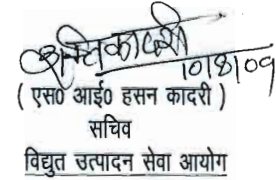 10/8/09
( एस0 आई0 हसन कादरी )
सचिव
विद्युत उत्पादन सेवा आयोग